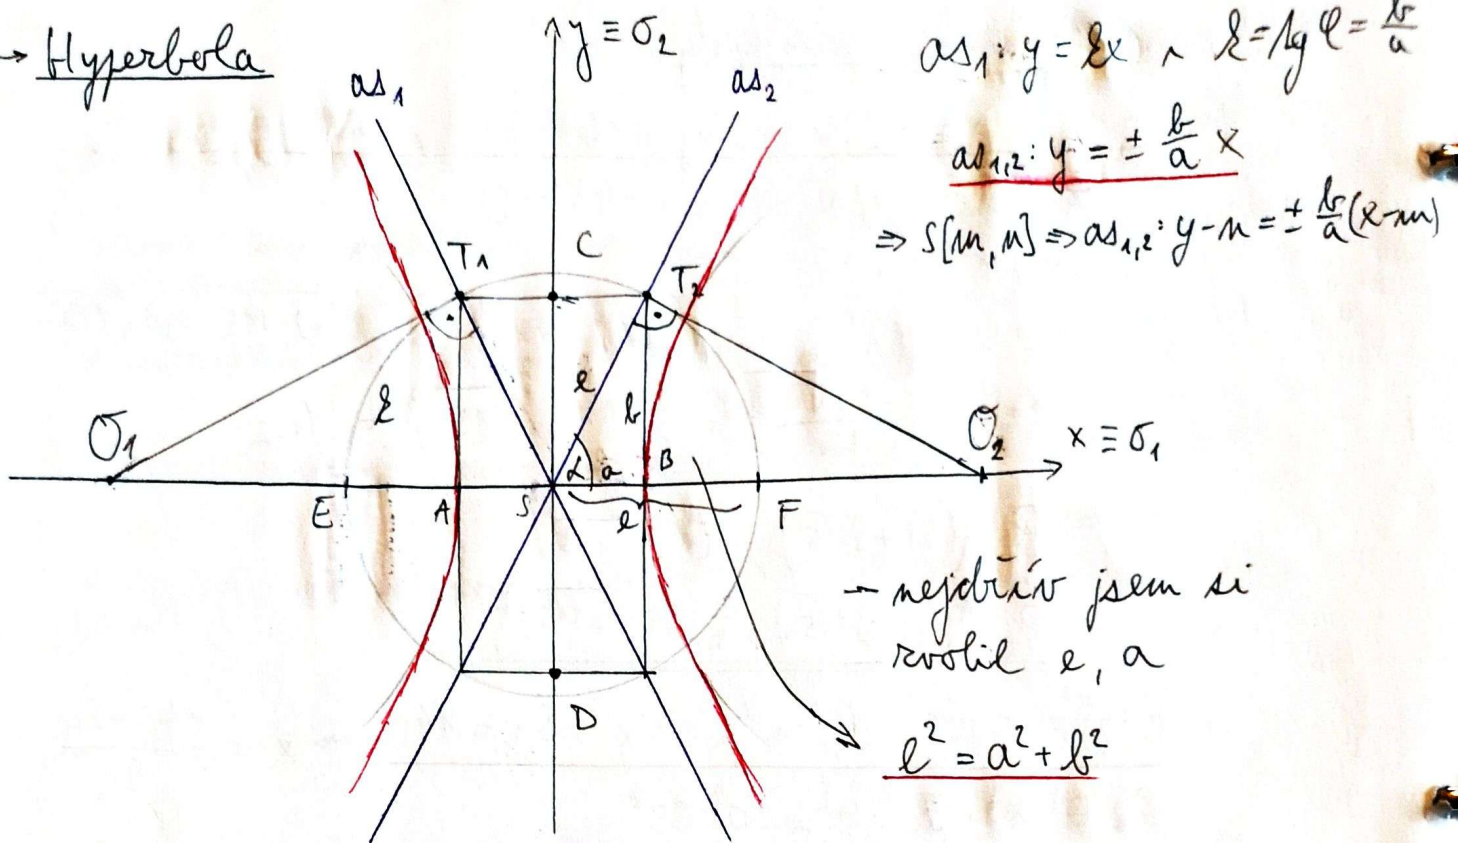 → Hyperbola
y ≡ σ₂
as₁
as₂
as₁: y = kx ∧ k = tg φ = b/a
as₁,₂: y = ± b/a x
⇒ S[m, n] ⇒ as₁,₂: y - n = ± b/a (x-m)
T₁
C
T₂
k
e
b
O₁
O₂
x ≡ σ₁
α
a
B
E
A
S
e
F
D
- nejdřív jsem si
zvolil e, a
e² = a² + b²